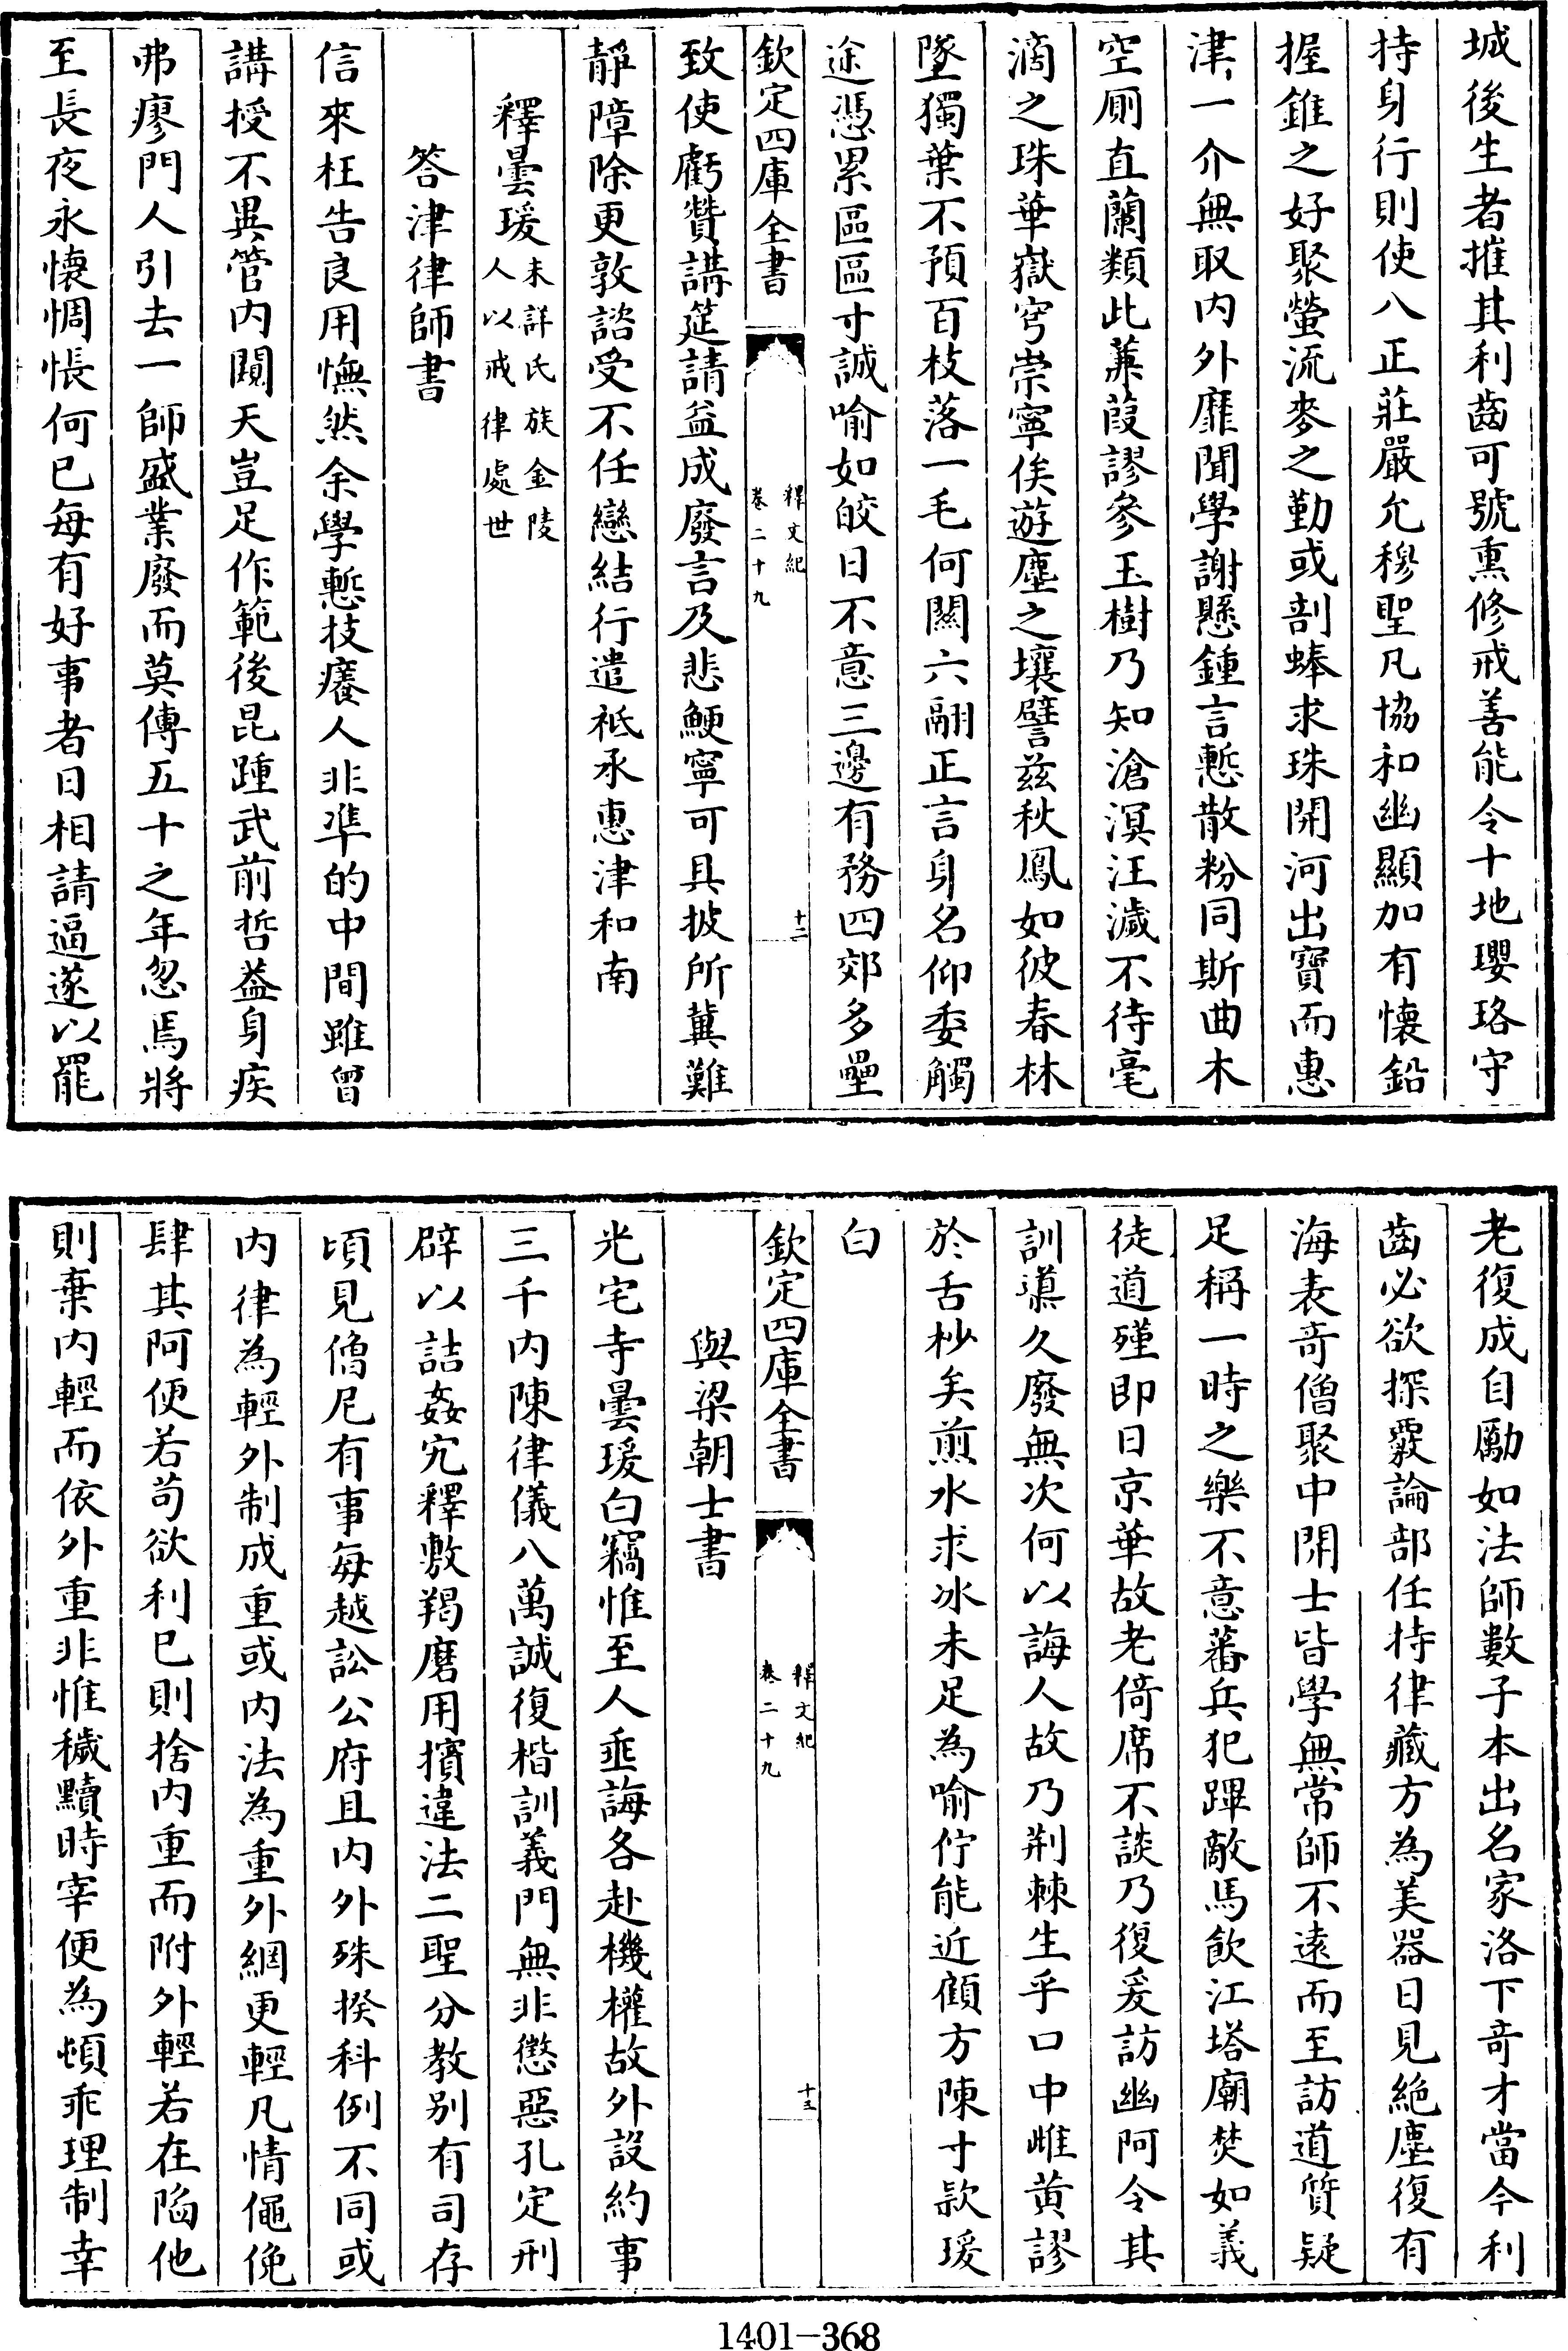 城後生者摧其利齒可號熏修戒善能令十地瓔珞守
持身行則使八正莊嚴允穆聖凡協和幽顯加有懷鉛
握錐之好聚螢流麥之勤或剖蜯求珠開河出寶而惠
津一介無取内外靡聞學謝懸鍾言慙散粉同斯曲木
空厠直蘭類此蒹葭謬參玉樹乃知滄溟汪濊不待毫
滴之珠華嶽穹崇寧俟遊塵之壤譬兹秋鳳如彼春林
墜獨葉不預百枝落一毛何關六翮正言身名仰委觸
途憑累區區寸誠喻如皎日不意三邊有務四郊多壘
欽定四庫全書
釋文紀
卷二十九
十二
致使虧贊講筵請益成廢言及悲鯁寧可具披所冀難
靜障除更敦諮受不任戀結行遣祗承惠津和南
釋曇瑗未詳氏族金陵
人以戒律處世
答津律師書
信來枉告良用憮然余學慙技癢人非準的中間雖曾
講授不異管内闚天豈足作範後昆踵武前哲葢身疾
弗瘳門人引去一師盛業廢而莫傳五十之年忽焉將
至長夜永懷惆悵何已每有好事者日相請逼遂以罷
老復成自勵如法師數子本出名家洛下竒才當今利
齒必欲探覈論部任持律藏方為美器日見絶塵復有
海表竒僧聚中開士皆學無常師不遠而至訪道質疑
足稱一時之樂不意蕃兵犯蹕敵馬飲江塔廟焚如義
徒道殣即日京華故老倚席不談乃復爰訪幽阿令其
訓導久廢無次何以誨人故乃荆棘生乎口中雌黄謬
於舌杪矣煎水求冰未足為喻佇能近顧方陳寸款瑗
白
欽定四庫全書
釋文紀
卷二十九
十三
與梁朝士書
光宅寺曇瑗白竊惟至人垂誨各赴機權故外設約事
三千内陳律儀八萬誠復楷訓義門無非懲惡孔定刑
辟以詰姦宄釋敷羯磨用擯違法二聖分教别有司存
頃見僧尼有事每越訟公府且内外殊揆科例不同或
内律為輕外制成重或内法為重外網更輕凡情僶俛
肆其阿便若苟欲利已則捨内重而附外輕若在陷他
則棄内輕而依外重非惟穢黷時宰便為頓乖理制幸
1401-368